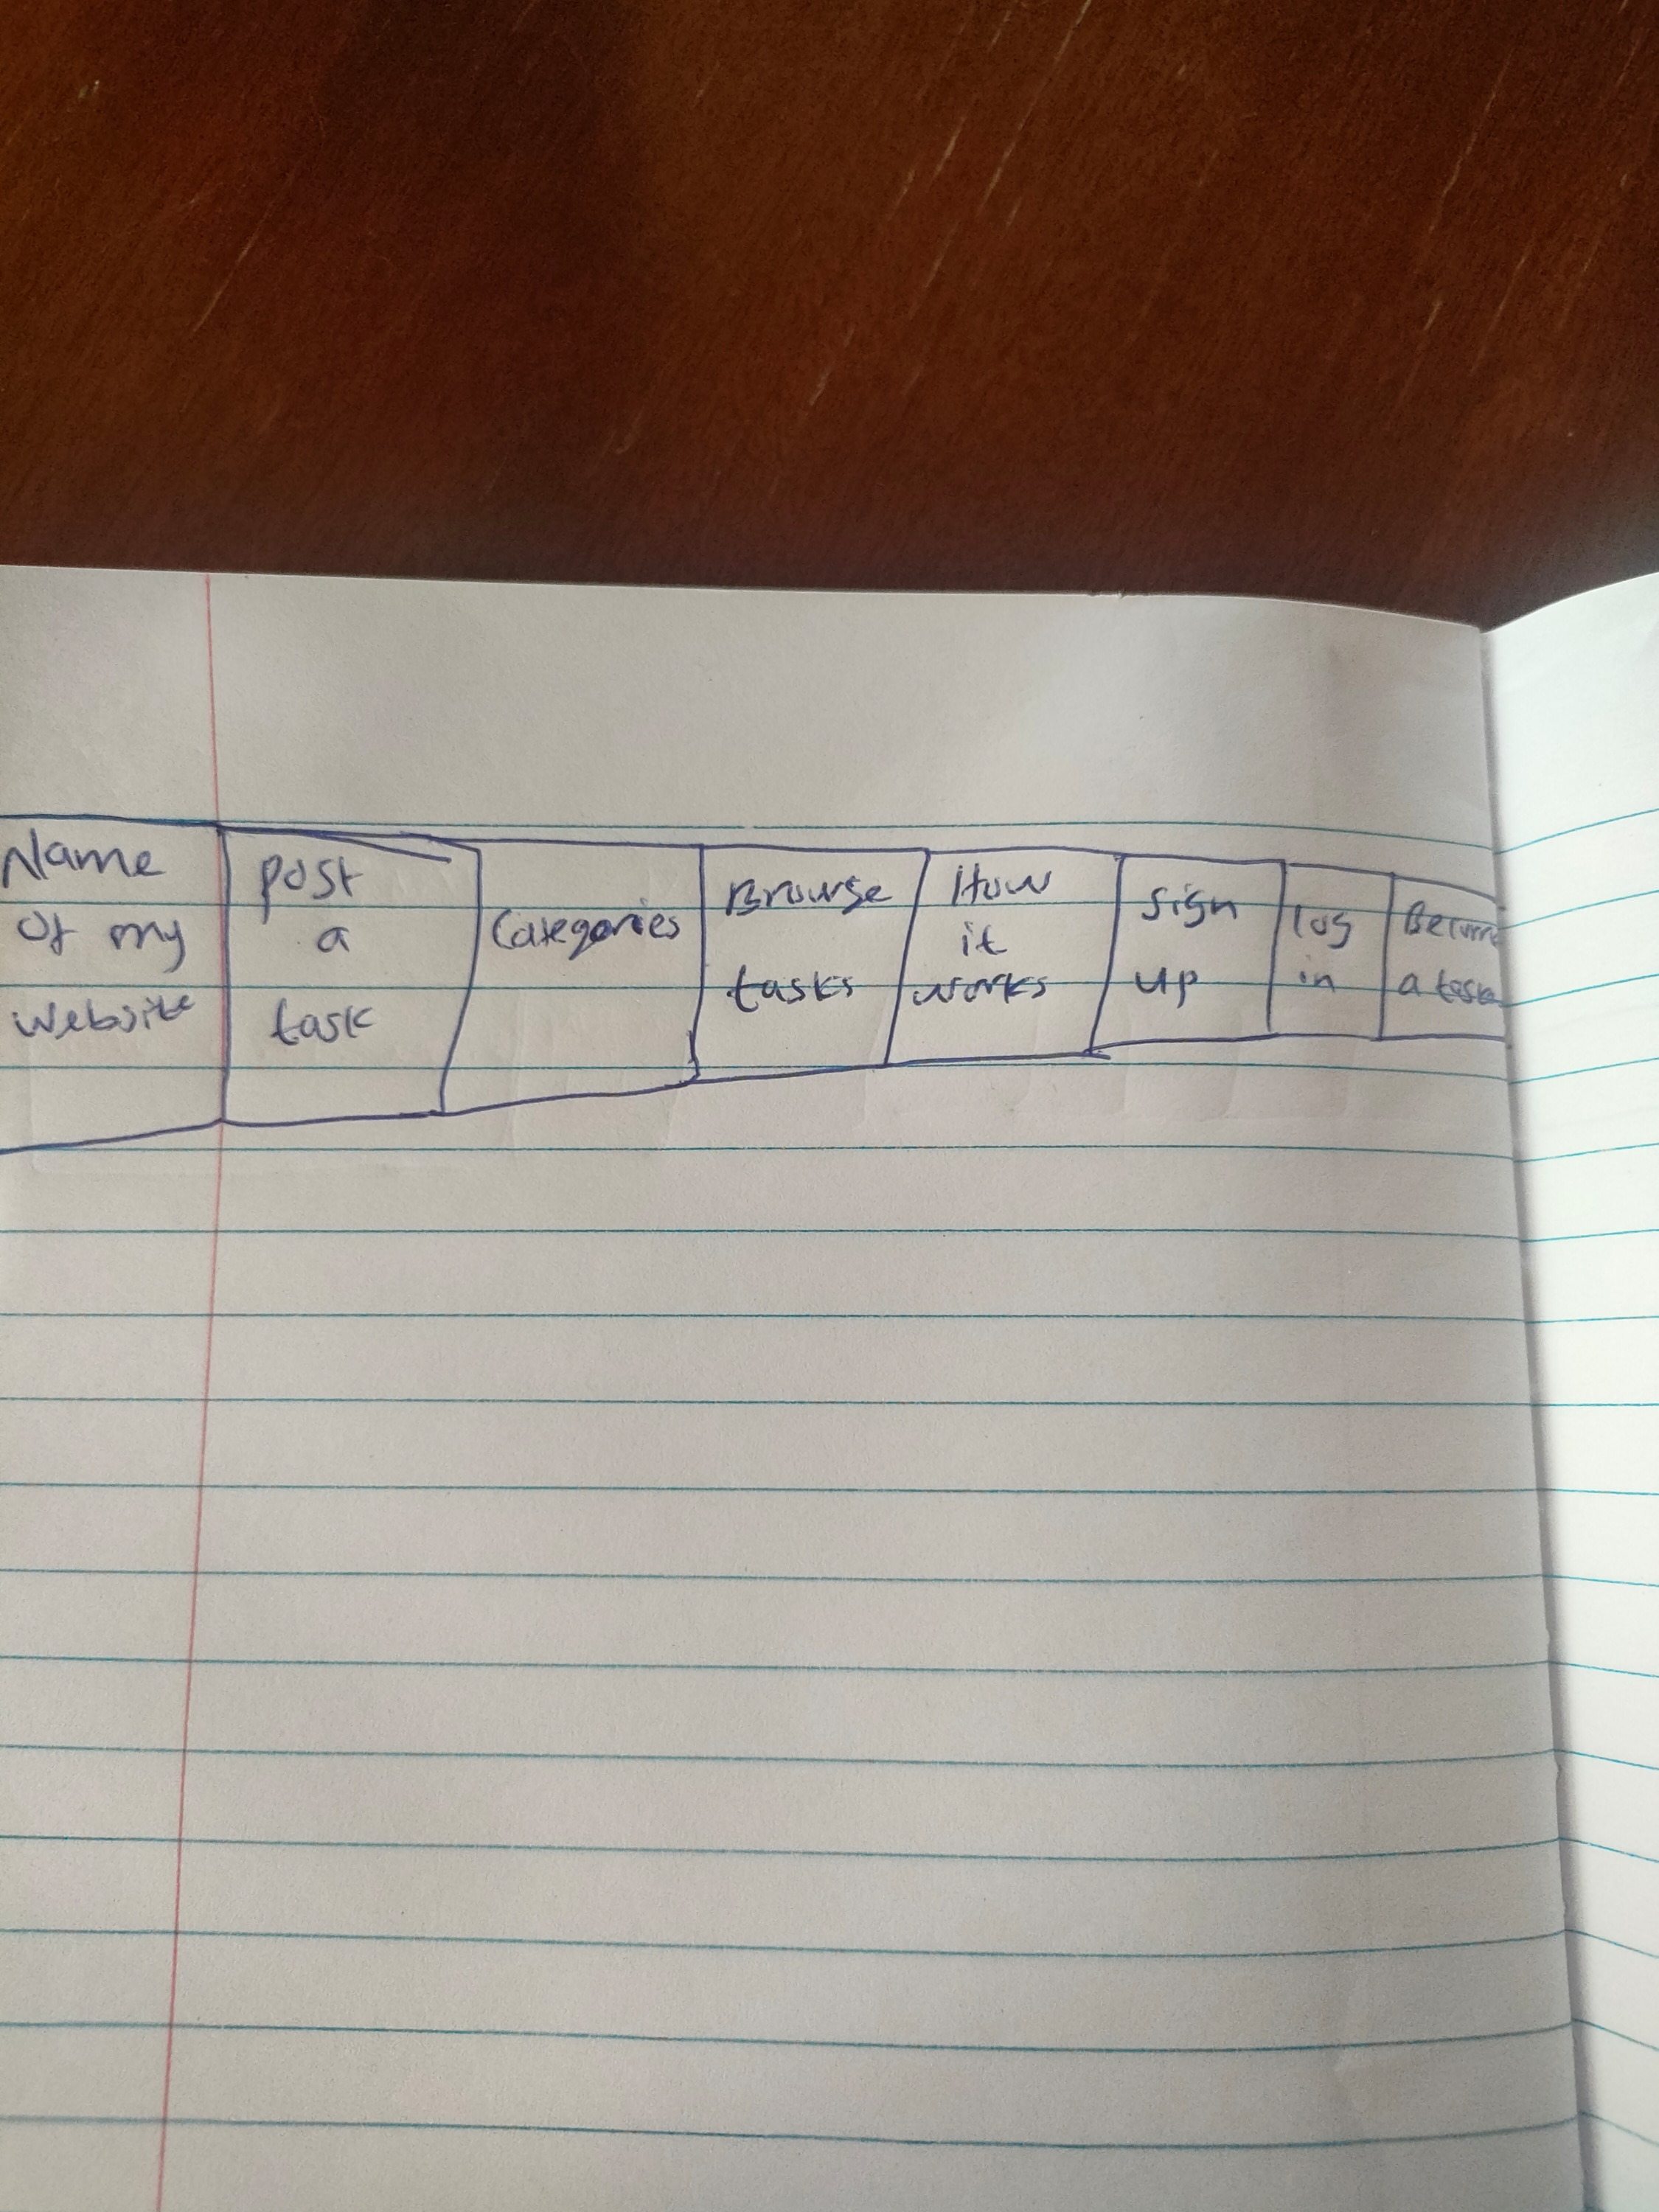 Name
of my
website
post
a
task
Categories
Browse
tasks
How
it
works
sign
up
log
in
a